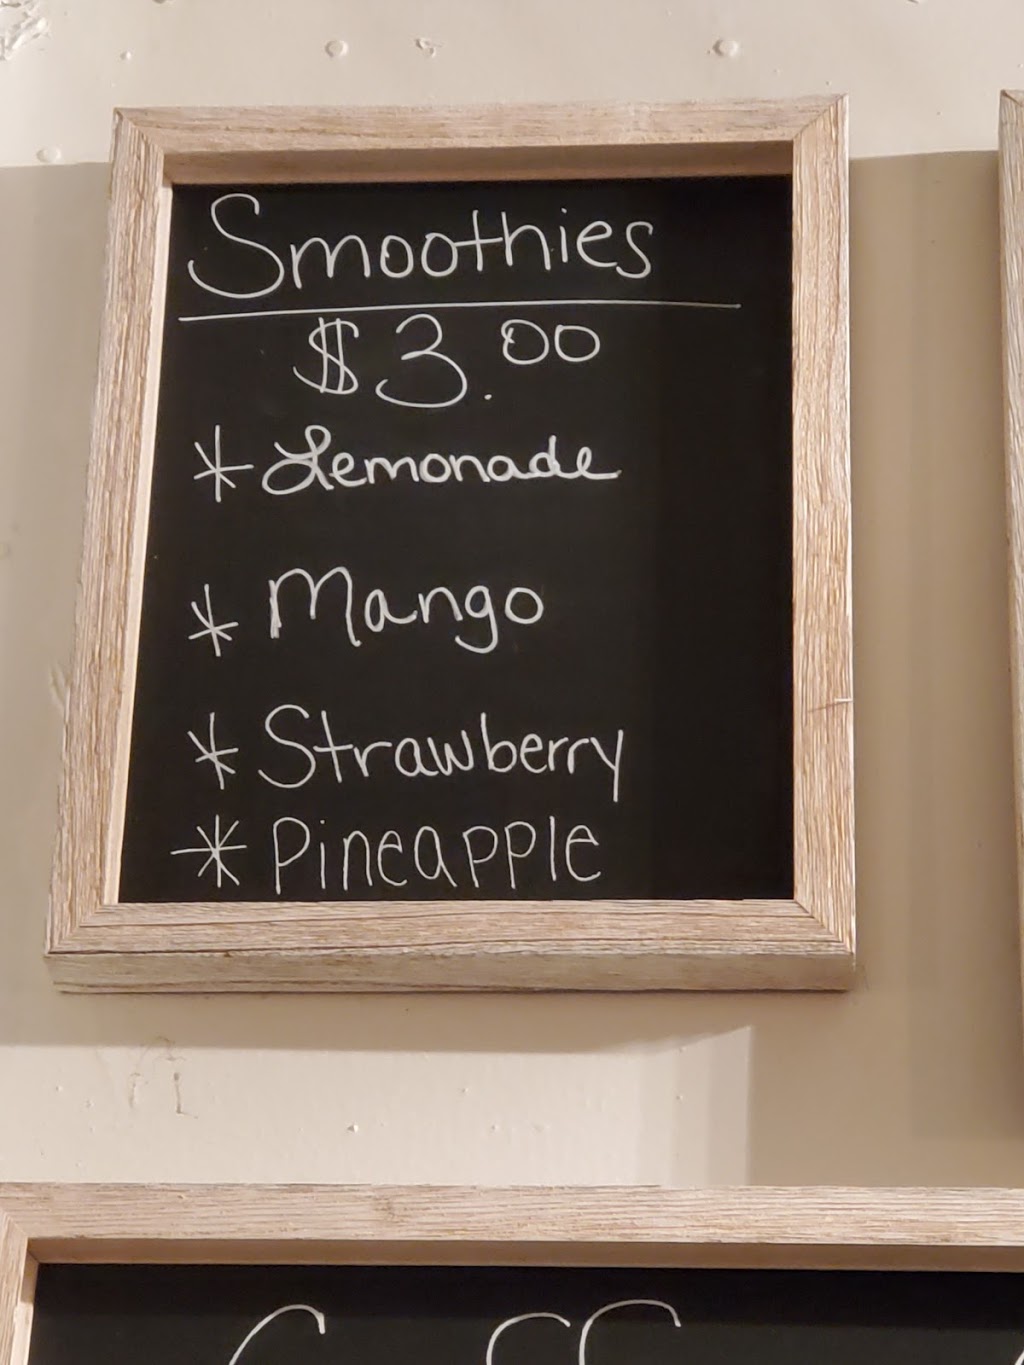 Smoothies
$3.00
* Lemonade
* Mango
* Strawberry
* Pineapple